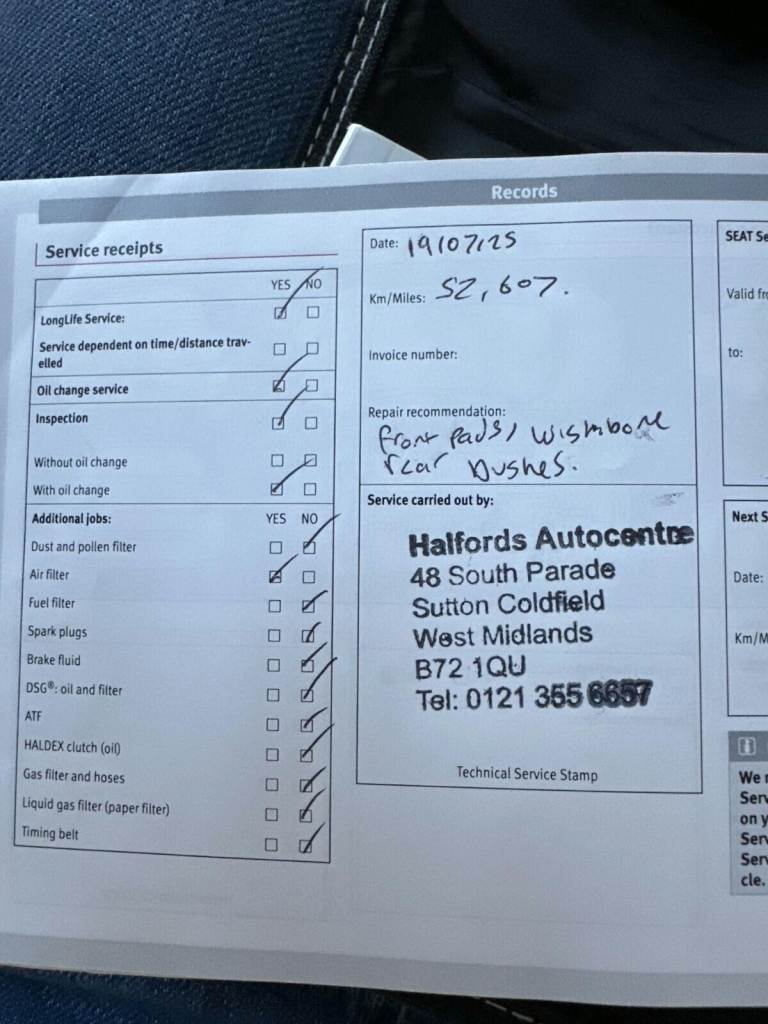 Records
Service receipts
YES NO
LongLife Service:
Service dependent on time/distance trav-
elled
Oil change service
Inspection
Without oil change
With oil change
Additional jobs: YES NO
Dust and pollen filter
Air filter
Fuel filter
Spark plugs
Brake fluid
DSG®: oil and filter
ATF
HALDEX clutch (oil)
Gas filter and hoses
Liquid gas filter (paper filter)
Timing belt
Date: 19/07/25
Km/Miles: 52,607.
Invoice number:
Repair recommendation:
front Pads, wishbone
rear bushes.
Service carried out by:
Halfords Autocentre
48 South Parade
Sutton Coldfield
West Midlands
B72 1QU
Tel: 0121 355 6657
Technical Service Stamp
SEAT Se
Valid fr
to:
Next S
Date:
Km/M
We
Serv
on y
Serv
Serv
cle.